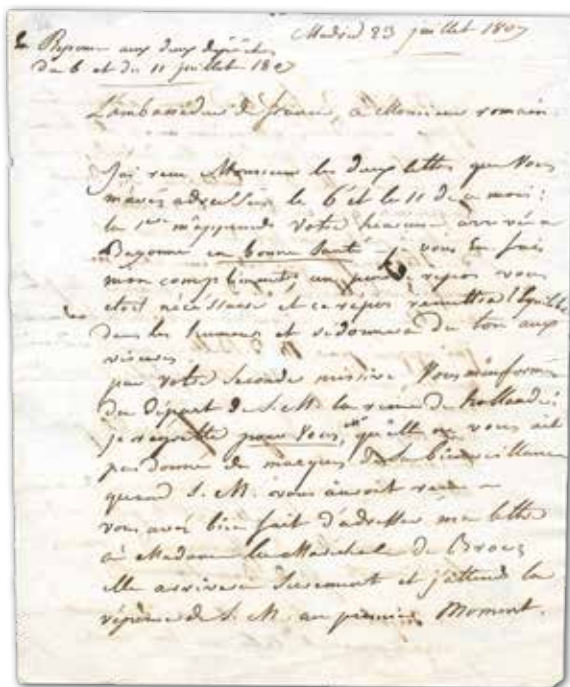 Madrid 23 juillet 1807
Reponse aux deux depêches
du 6 et du 11 juillet 180
L'ambassadeur de france, a Monsieur romain
J'ai recu Monsieur les deux lettres que Vous
m'avés adressées le 6 et le 11 de ce mois:
la 1ere m'apprends votre heureuse arrivée a
Bayonne en bonne Santé je vous en fais
mon compliment, un peu de repos vous
etoit nécéssaire et ce repos remettra l'Equilibre
dans les humeurs et redonnera du ton aux
visceres
par votre Seconde missive, Vous m'informés
du départ de S. M. la reine de hollande:
je regrette pour Vous, qu'elle ne vous ait
pas donné de marques de Sa bienveillance
quand S. M. vous auroit recu
vous avés bien fait d'adresser ma lettre
a Madame la Marechale de Brocq
elle arrivera Surement et j'attends la
réponse de S. M. au premier Moment.